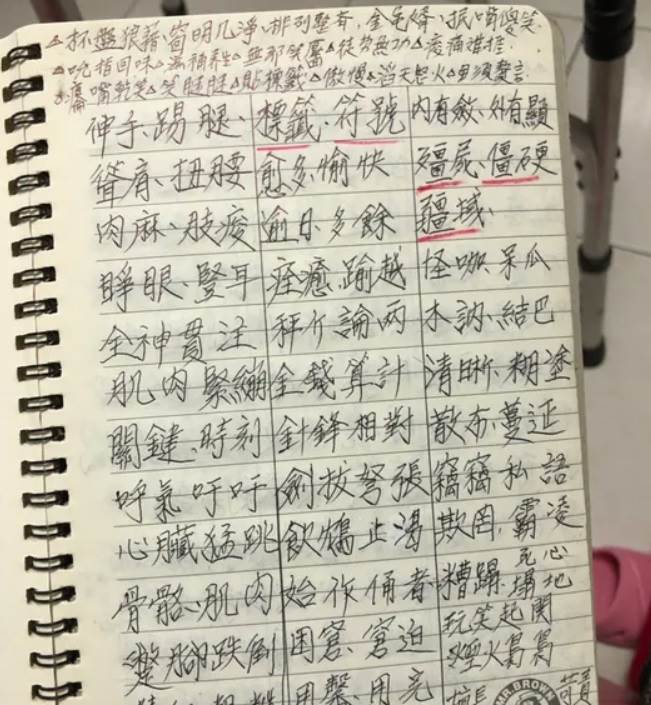 △杯盤狼藉、窗明几淨、排列整齊、抿嘴傻笑
△吮指回味△無那笑靨△徒勞無功△痠痛難捱
嘴乾笑△笑瞇瞇△傲慢△滔天怒火
伸手、踢腿、 標籤、符號 內有斂、外有顯
聳肩、扭腰 愈多、愉快 殭屍、僵硬
肉麻、肢痠 逾日、多餘 疆域、
睜眼、豎耳 痊癒、踰越 怪咖、呆瓜
全神貫注 秤斤論兩 木訥、結巴
肌肉緊繃 金錢算計 清晰、糊塗
關鍵、時刻 針鋒相對 散布、蔓延
呼氣吁吁 劍拔弩張 竊竊私語
心臟猛跳 飲鴆止渴 欺罔、霸凌
骨骼、肌肉 始作俑者 糟蹋、塌地
死心
蹩腳跌倒 困窘、窘迫 玩笑起鬨
煙火
用罄、用完
MR.BROWN